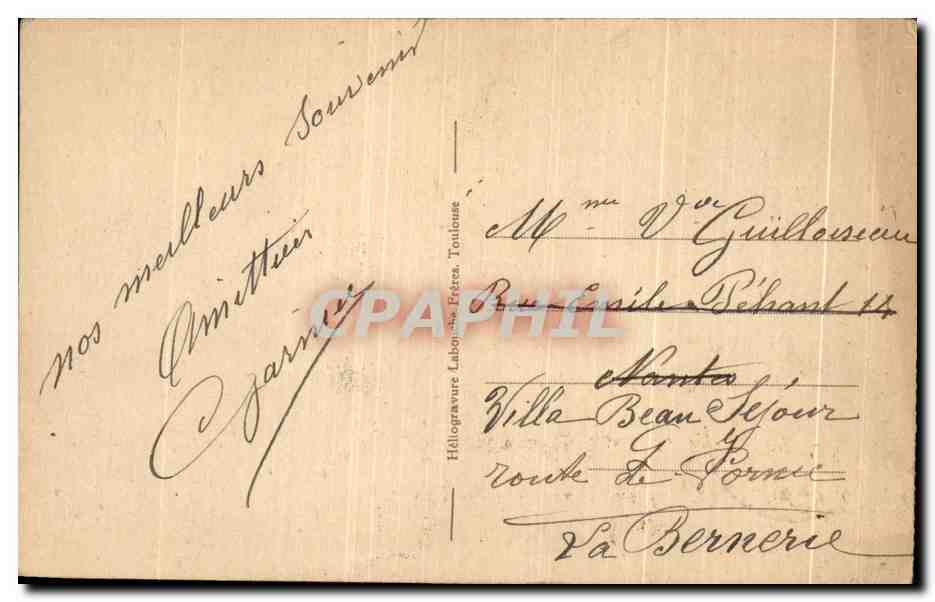 nos meilleurs Souvenir
Amitties
CPAPHIL
Héliogravure Labouche Frères, Toulouse
Mme Vve Guilloiseau
Rue Emile Péhant 14
Nantes
Villa Beau Séjour
route de Pornic
La Bernerie